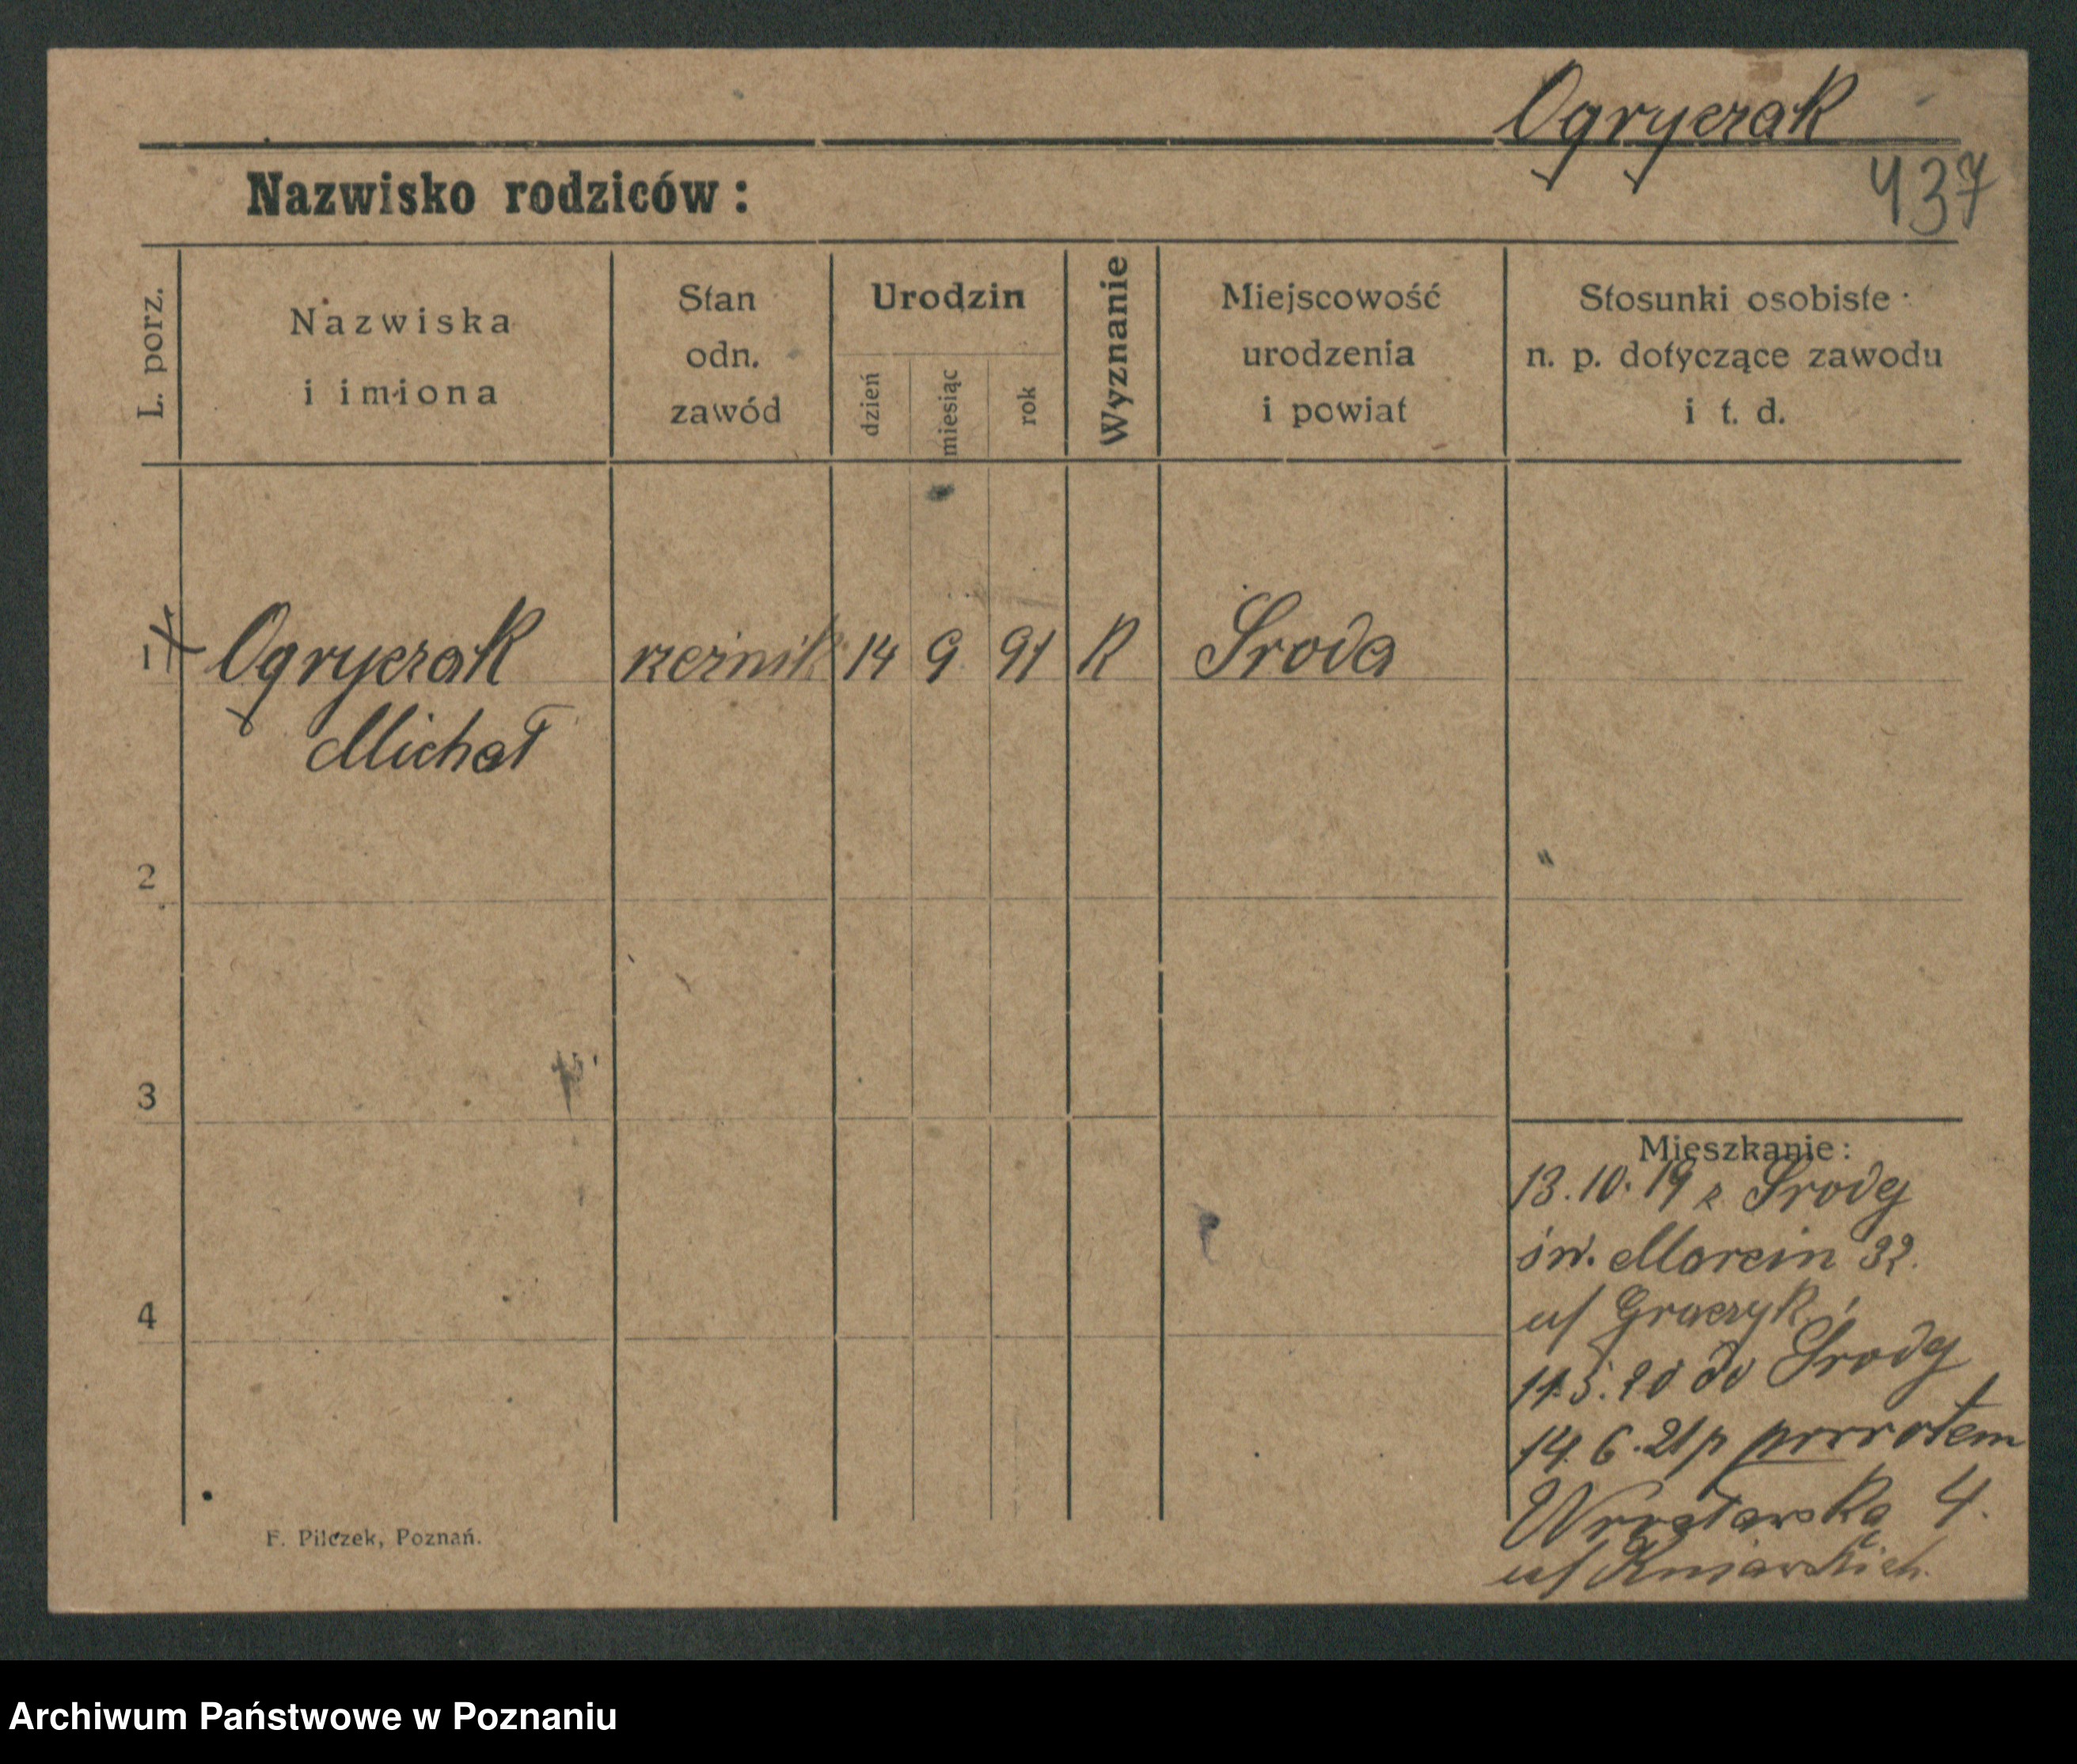 Ogryczak
437
Nazwisko rodziców:
L. porz.
Nazwiska
i imiona
Stan
odn.
zawód
Urodzin
dzień
miesiąc
rok
Wyznanie
Miejscowość
urodzenia
i powiat
Stosunki osobiste
n. p. dotyczące zawodu
i t. d.
1 Ogryczak rzeźnik 14 9 91 R Środa
Michał
2
3
4
Mieszkanie:
13.10.19 z Środy
św. Marcin 32.
u/ Graczyk
11.5.20 do Środy
14.6.21 p
Wrocławska 4.
u/
F. Pilczek, Poznań.
Archiwum Państwowe w Poznaniu